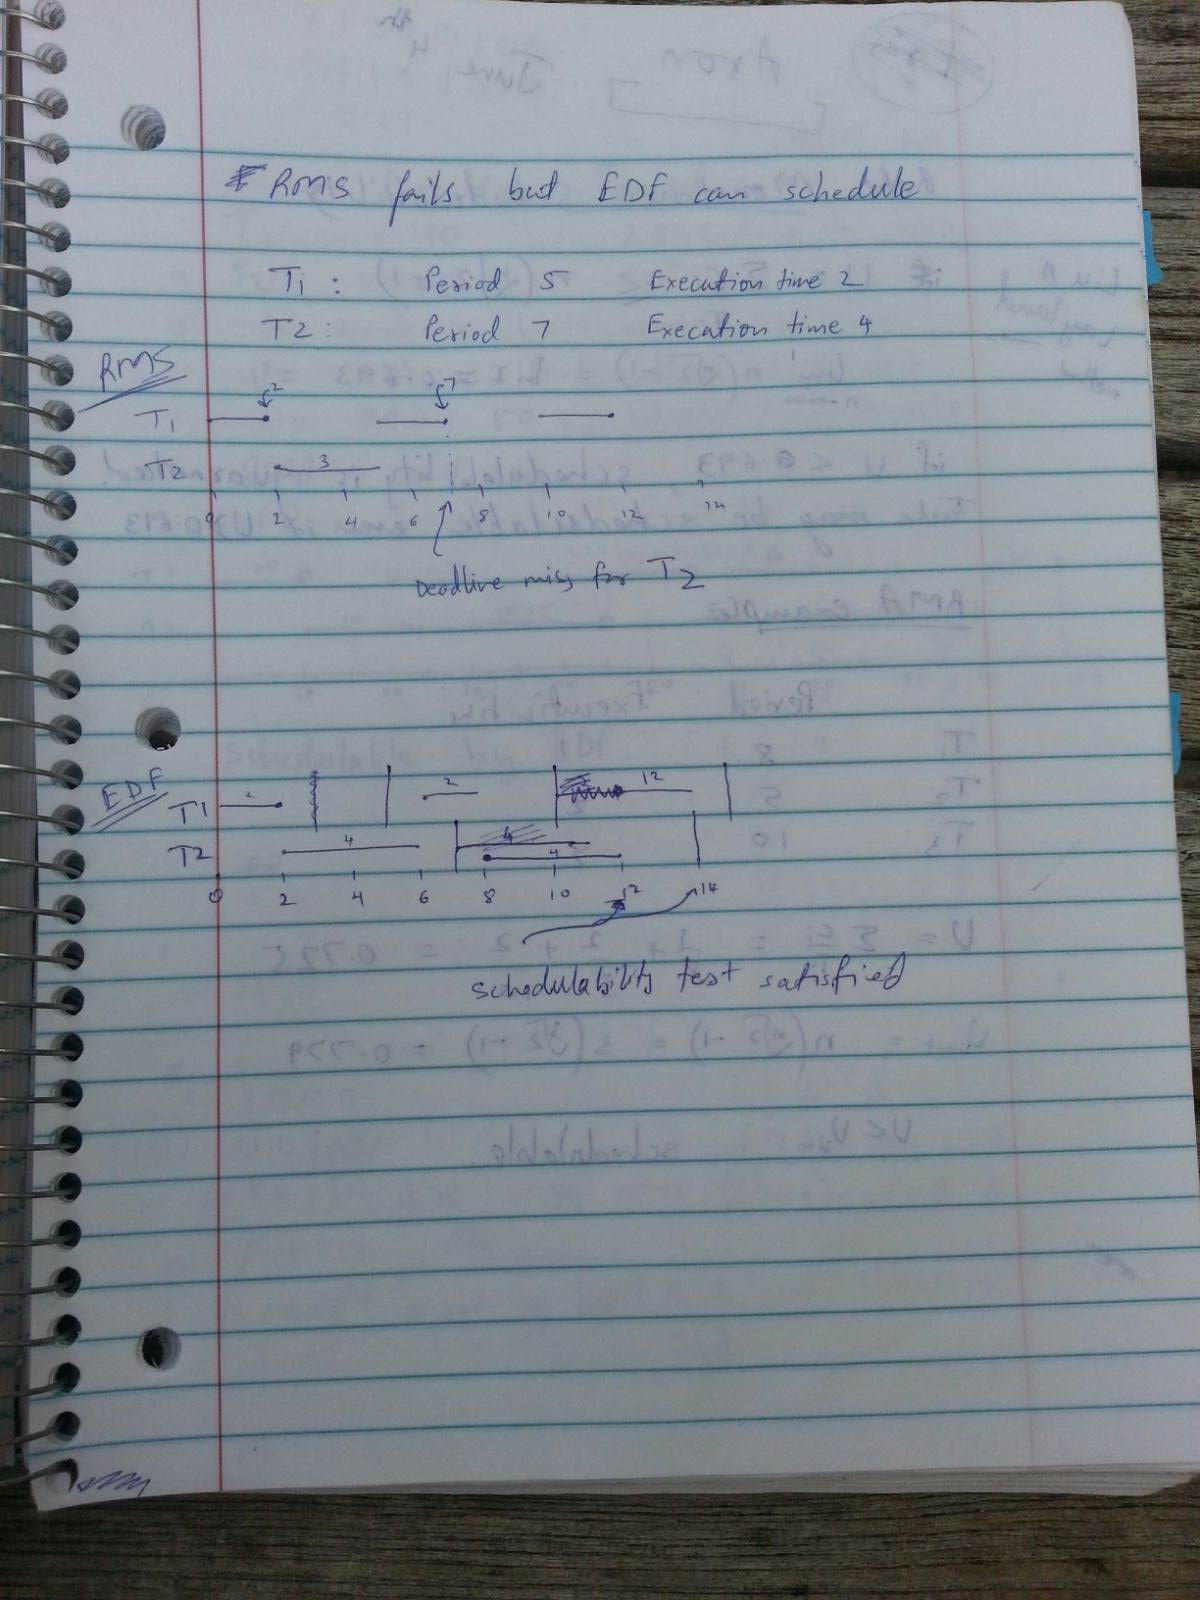 RMS fails but EDF can schedule
T1 : Period 5 Execution time 2
T2 : Period 7 Execution time 4
RMS
2 7
T1
T2 3
0 2 4 6 8 10 12 14
Deadline miss for T2
EDF
T1 2 2 12
T2 4 4
0 2 4 6 8 10 12 14
schedulability test satisfied